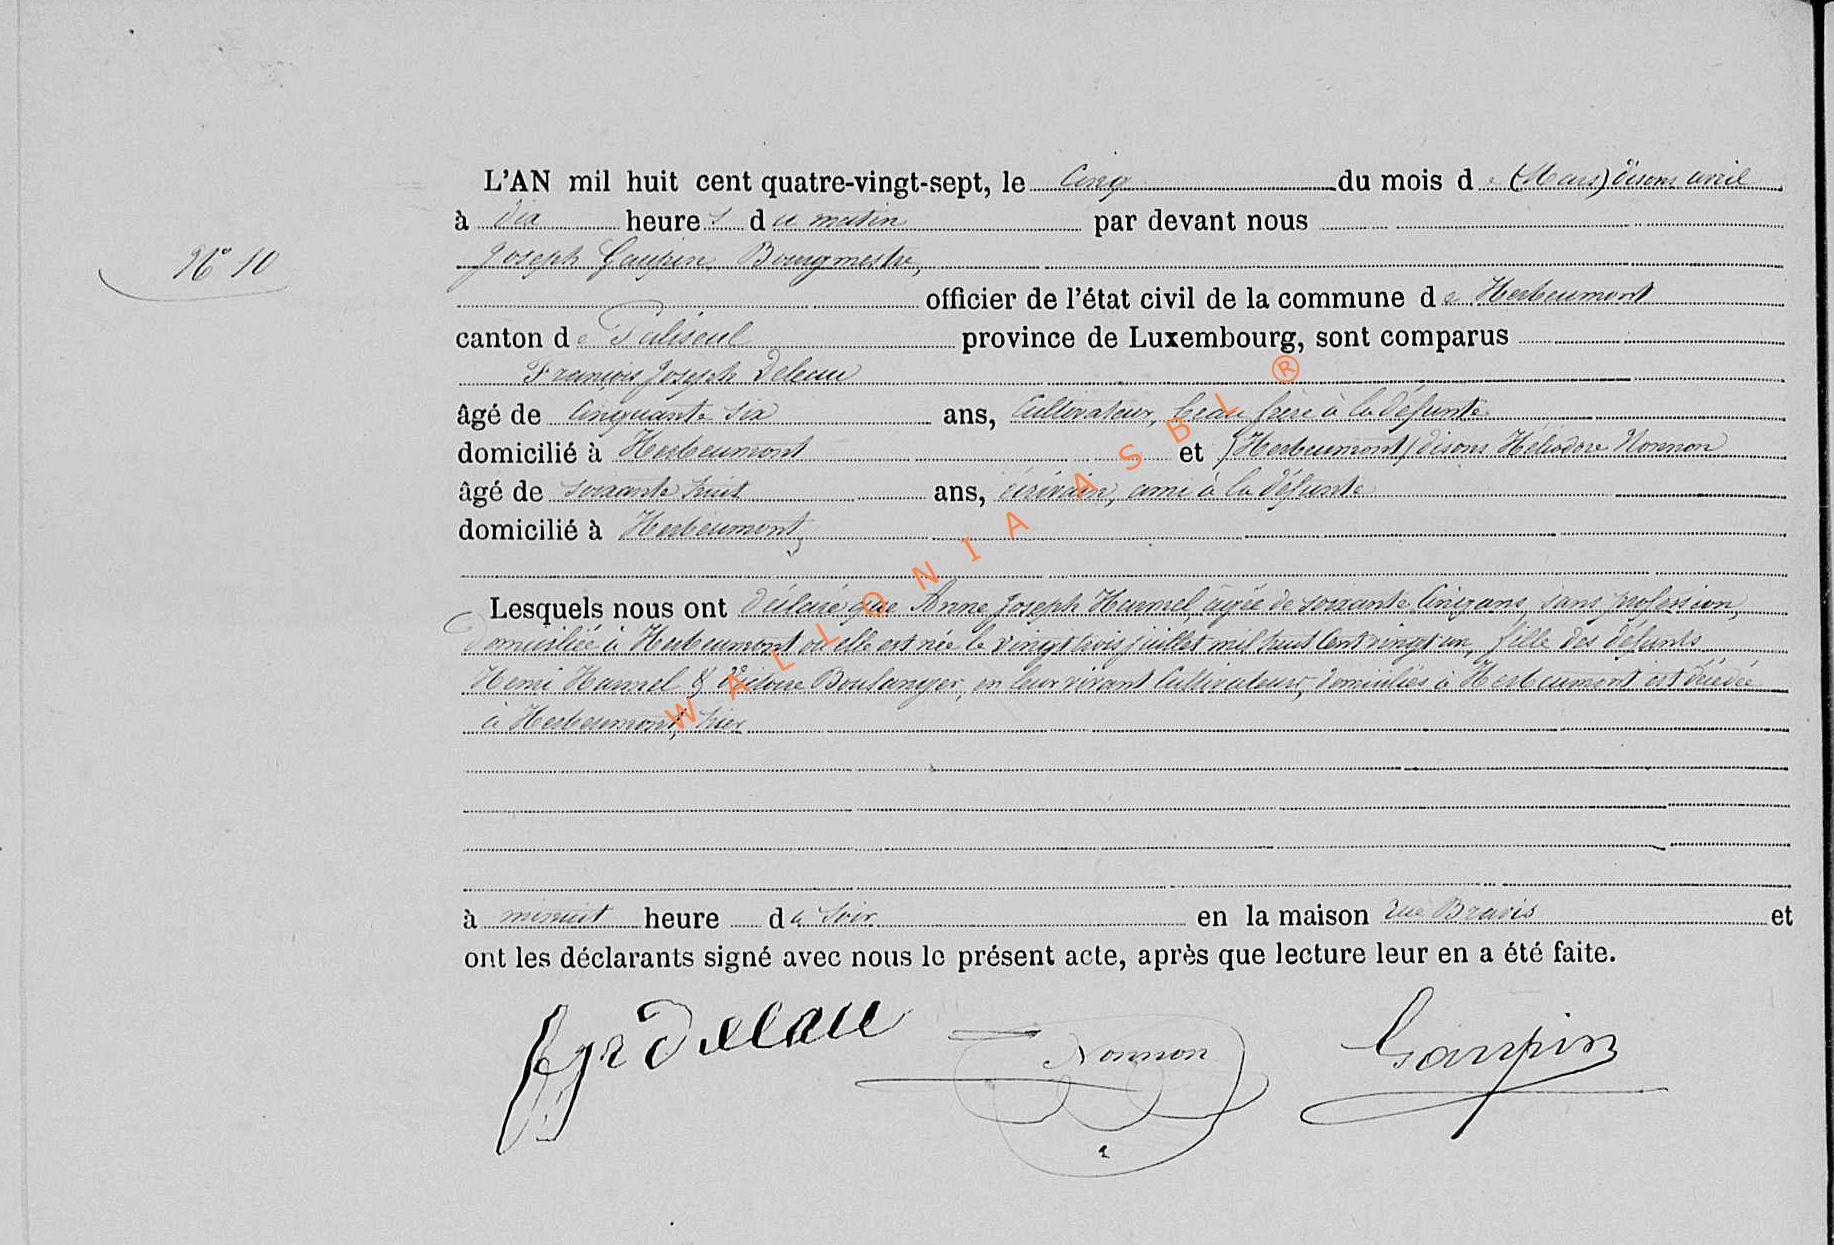 L'AN mil huit cent quatre-vingt-sept, le Cinq du mois de (Mars) disons avril
à dix heures du matin par devant nous
N° 10
Joseph Gaupin, Bourgmestre,
officier de l'état civil de la commune de Herbeumont
canton de Paliseul province de Luxembourg, sont comparus
François Joseph Deleau
âgé de Cinquante six ans, Cultivateur, beau frère à la défunte
domicilié à Herbeumont et (Herbeumont) disons Héliodore Nonnon
âgé de soixante huit ans, écrivain, ami à la défunte
domicilié à Herbeumont,
Lesquels nous ont déclaré que Anne Joseph Hurmel, âgée de soixante Cinq ans, sans profession,
domiciliée à Herbeumont où elle est née le vingt trois juillet mil huit Cent vingt un, fille des défunts
Henri Hurmel & Victoire Boulanger, en leur vivant Cultivateurs, domiciliés à Herbeumont est décédée
à Herbeumont, hier
à minuit heure du soir en la maison rue Bravis et
ont les déclarants signé avec nous le présent acte, après que lecture leur en a été faite.
Delau
Nonnon
Gaupin
WALLONIA ASBL ®